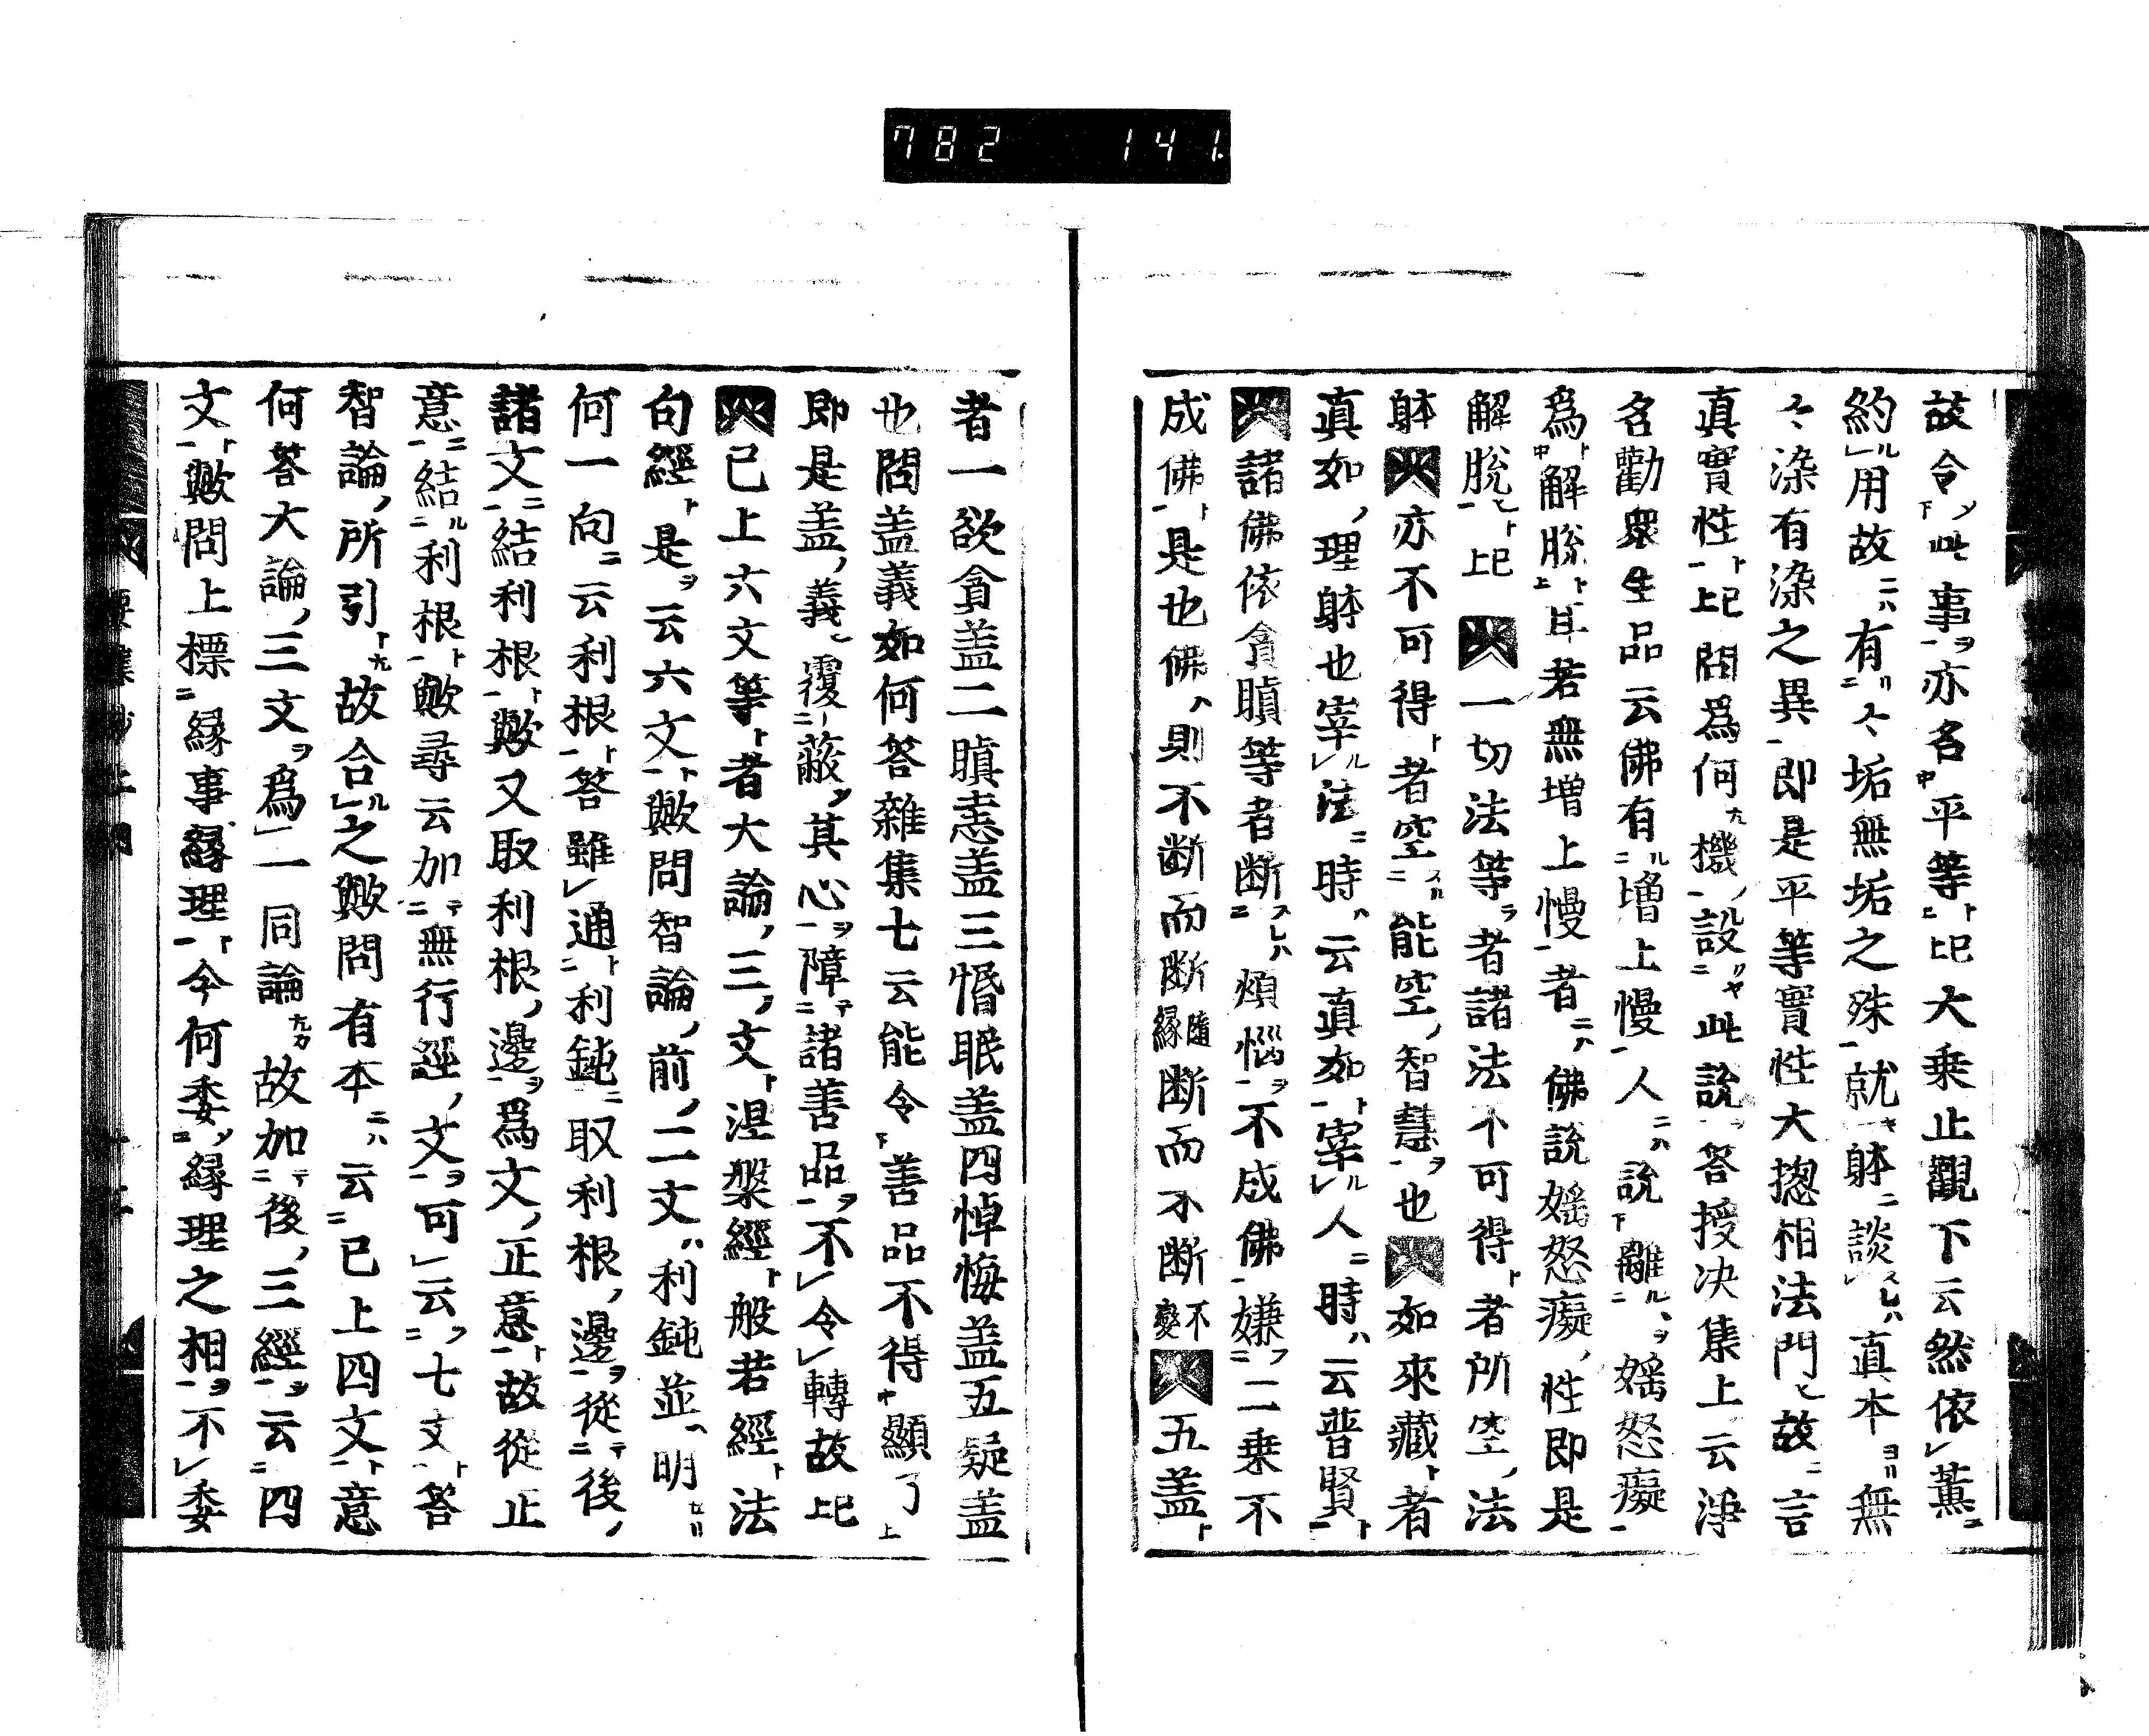 782 141.
故令此事亦名平等已上大乗止觀下云然依薫
約用故有〻垢無垢之殊就躰談真本無
〻染有染之異即是平等實性大揔相法門故言
真實性已上問爲何機設此説答授决集上云浄
名勸衆生品云佛有増上慢人説離婬怒癡
爲解脱耳若無増上慢者佛説婬怒癡性即是
解脱已上一切法等者諸法不可得者所空法
躰亦不可得者空能空智慧也如來藏者
真如理躰也宰法時云真如宰人時云普賢
諸佛依貪瞋等者断煩惱不成佛嫌二乗不
成佛是也佛則不断而断隨縁断而不断不變五盖
者一欲貪盖二瞋恚盖三惛眠盖四悼悔盖五疑盖
也問盖義如何答雜集七云能令善品不得顯了
即是盖義覆蔽其心障諸善品不令轉故已上
已上六文等者大論三文涅槃經般若經法
句經是云六文歟問智論前二文利鈍並明
何一向云利根答雖通利鈍取利根邊從後
諸文結利根歟又取利根邊爲文正意故從正
意結利根歟尋云加無行經文可云七文答
智論所引故合之歟問有本云已上四文意
何答大論三文爲一同論故加後三經云四
文歟問上標縁事縁理今何委縁理之相不委